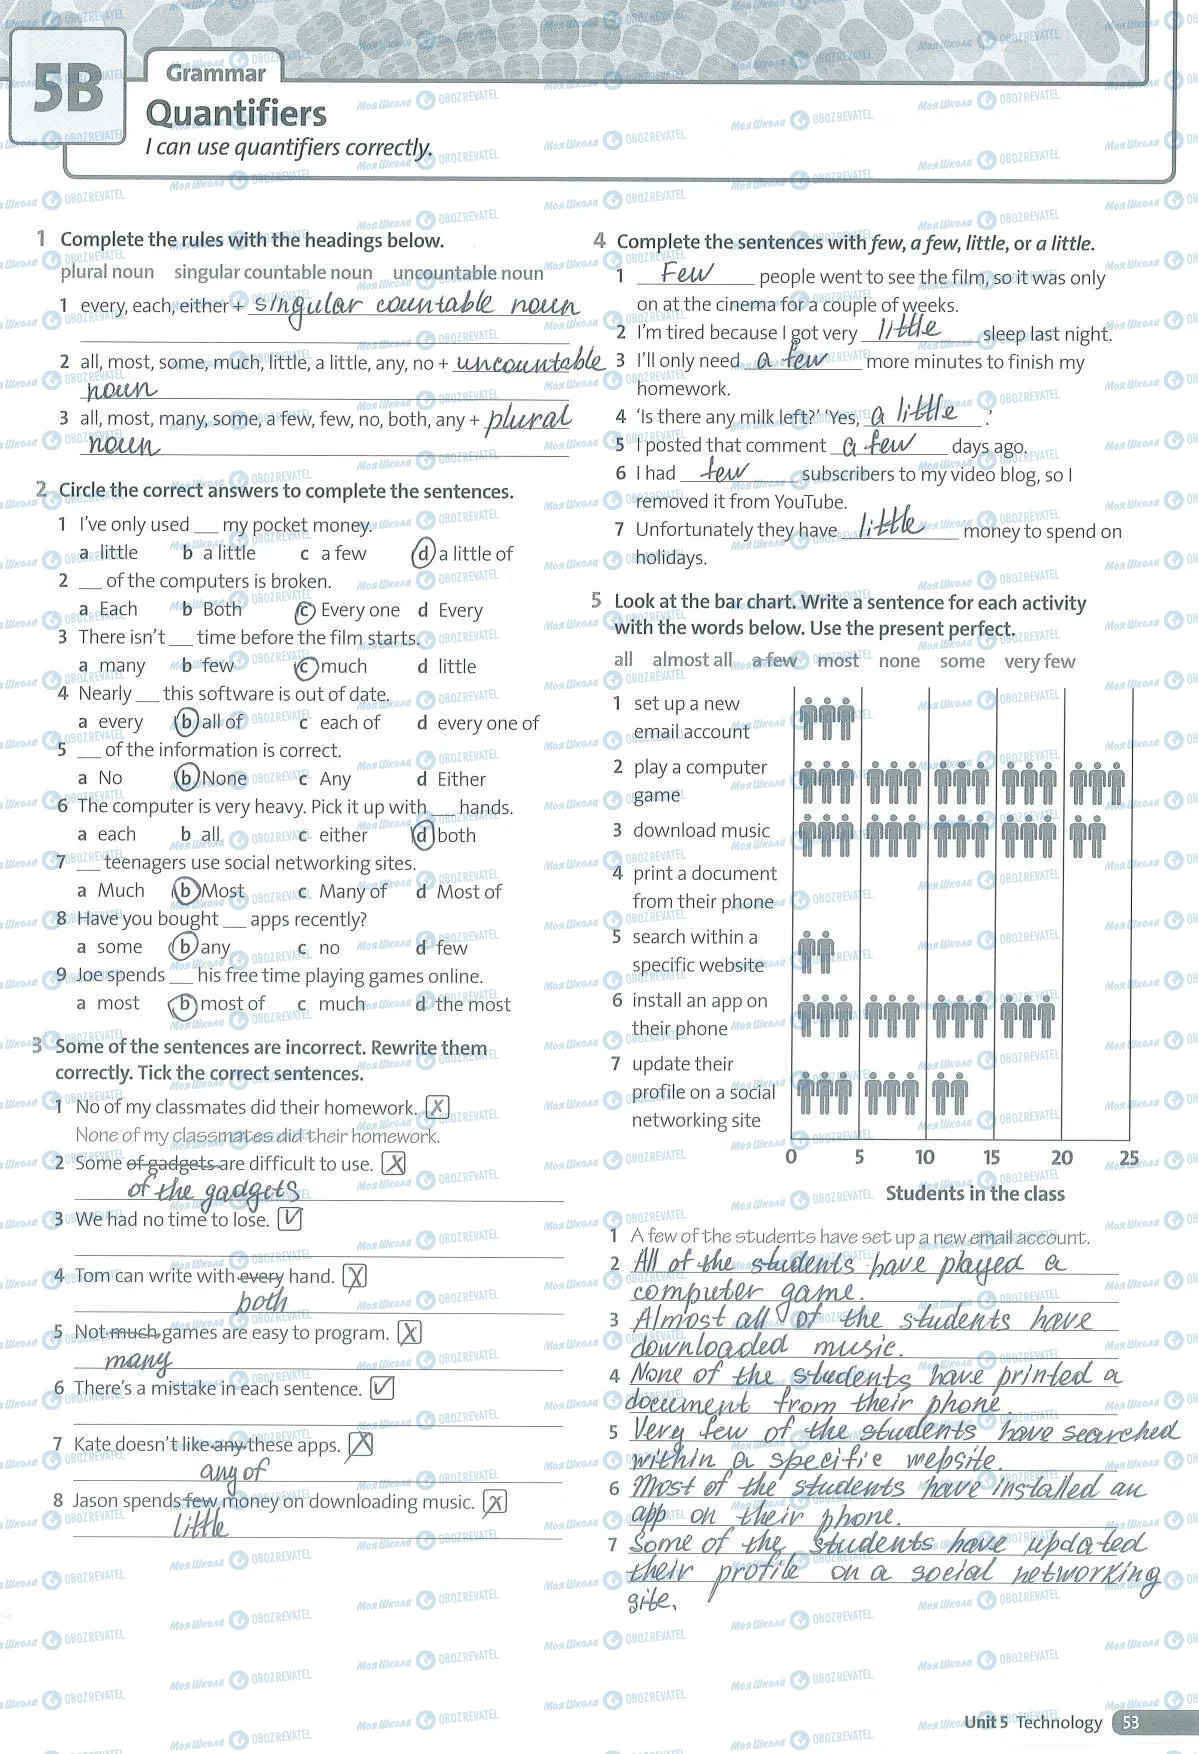 5B
Grammar
Quantifiers
I can use quantifiers correctly.
1 Complete the rules with the headings below.
plural noun singular countable noun uncountable noun
1 every, each, either + singular countable noun
2 all, most, some, much, little, a little, any, no + uncountable
noun
3 all, most, many, some, a few, few, no, both, any + plural
noun
2 Circle the correct answers to complete the sentences.
1 I've only used ___ my pocket money.
a little b a little c a few d a little of
2 ___ of the computers is broken.
a Each b Both c Every one d Every
3 There isn't ___ time before the film starts.
a many b few c much d little
4 Nearly ___ this software is out of date.
a every b all of c each of d every one of
5 ___ of the information is correct.
a No b None c Any d Either
6 The computer is very heavy. Pick it up with ___ hands.
a each b all c either d both
7 ___ teenagers use social networking sites.
a Much b Most c Many of d Most of
8 Have you bought ___ apps recently?
a some b any c no d few
9 Joe spends ___ his free time playing games online.
a most b most of c much d the most
3 Some of the sentences are incorrect. Rewrite them
correctly. Tick the correct sentences.
1 No of my classmates did their homework. X
None of my classmates did their homework.
2 Some of gadgets are difficult to use. X
of the gadgets
3 We had no time to lose. ✓
4 Tom can write with every hand. X
both
5 Not much games are easy to program. X
many
6 There's a mistake in each sentence. ✓
7 Kate doesn't like any these apps. X
any of
8 Jason spends few money on downloading music. X
little
4 Complete the sentences with few, a few, little, or a little.
1 Few people went to see the film, so it was only
on at the cinema for a couple of weeks.
2 I'm tired because I got very little sleep last night.
3 I'll only need a few more minutes to finish my
homework.
4 'Is there any milk left?' 'Yes, a little.'
5 I posted that comment a few days ago.
6 I had few subscribers to my video blog, so I
removed it from YouTube.
7 Unfortunately they have little money to spend on
holidays.
5 Look at the bar chart. Write a sentence for each activity
with the words below. Use the present perfect.
all almost all a few most none some very few
1 set up a new
email account
2 play a computer
game
3 download music
4 print a document
from their phone
5 search within a
specific website
6 install an app on
their phone
7 update their
profile on a social
networking site
0 5 10 15 20 25
Students in the class
1 A few of the students have set up a new email account.
2 All of the students have played a
computer game.
3 Almost all of the students have
downloaded music.
4 None of the students have printed a
document from their phone.
5 Very few of the students have searched
within a specific website.
6 Most of the students have installed an
app on their phone.
7 Some of the students have updated
their profile on a social networking
site.
Unit 5 Technology 53
МояШкола OBOZREVATEL